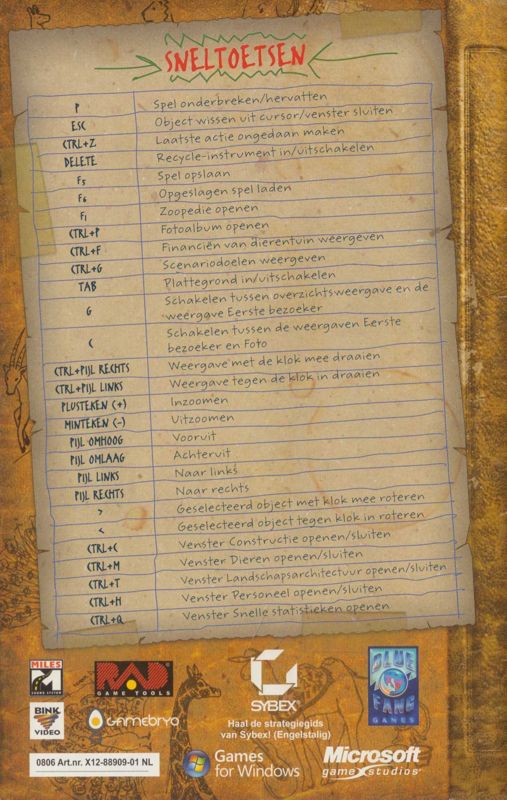 SNELTOETSEN
P Spel onderbreken/hervatten
ESC Object wissen uit cursor/venster sluiten
CTRL+Z Laatste actie ongedaan maken
DELETE Recycle-instrument in/uitschakelen
F5 Spel opslaan
F6 Opgeslagen spel laden
F1 Zoopedie openen
CTRL+P Fotoalbum openen
CTRL+F Financiën van dierentuin weergeven
CTRL+G Scenariodoelen weergeven
TAB Plattegrond in/uitschakelen
G Schakelen tussen overzichtsweergave en de
weergave Eerste bezoeker
C Schakelen tussen de weergaven Eerste
bezoeker en Foto
CTRL+PIJL RECHTS Weergave met de klok mee draaien
CTRL+PIJL LINKS Weergave tegen de klok in draaien
PLUSTEKEN (+) Inzoomen
MINTEKEN (-) Uitzoomen
PIJL OMHOOG Vooruit
PIJL OMLAAG Achteruit
PIJL LINKS Naar links
PIJL RECHTS Naar rechts
> Geselecteerd object met klok mee roteren
< Geselecteerd object tegen klok in roteren
CTRL+C Venster Constructie openen/sluiten
CTRL+M Venster Dieren openen/sluiten
CTRL+T Venster Landschapsarchitectuur openen/sluiten
CTRL+H Venster Personeel openen/sluiten
CTRL+Q Venster Snelle statistieken openen
MILES
SOUND SYSTEM
RAD®
GAME TOOLS
SYBEX®
BLUE
FANG
GAMES
BINK
VIDEO
GAMEBRYO
Haal de strategiegids
van Sybex! (Engelstalig)
0806 Art.nr. X12-88909-01 NL
Games
for Windows
Microsoft
game studios®